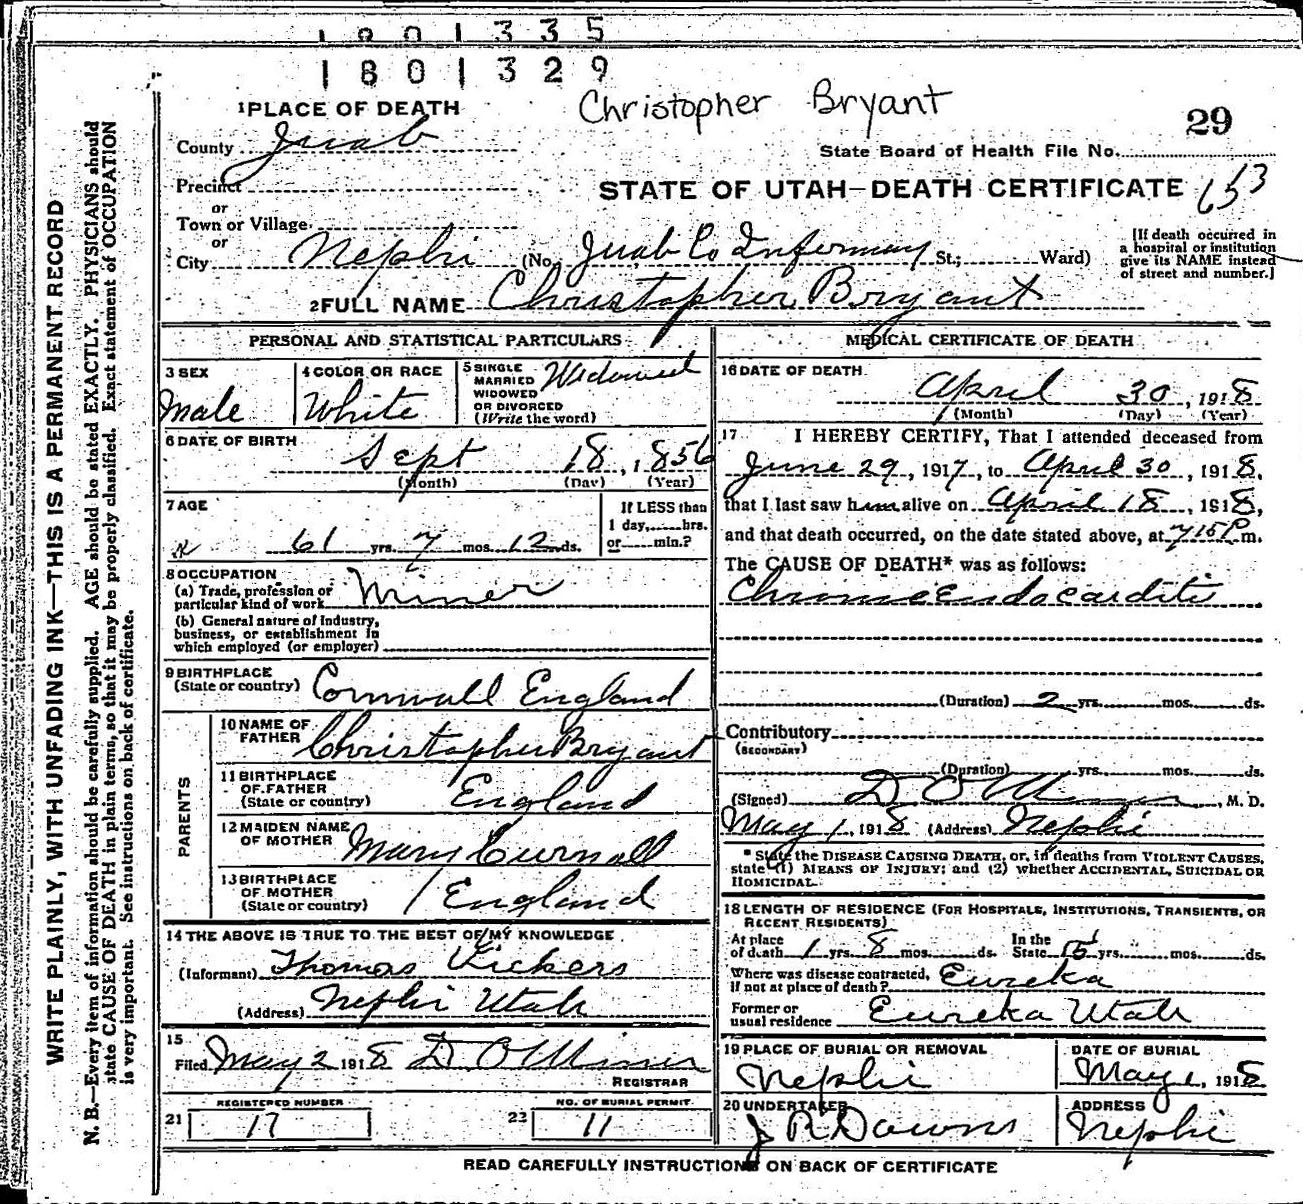 1801335
1801329
Christopher Bryant
29
1 PLACE OF DEATH
County Juab
State Board of Health File No.
Precinct
or
STATE OF UTAH—DEATH CERTIFICATE 653
Town or Village
or
City Nephi (No. Juab Co Infermary St.; Ward)
[If death occurred in a hospital or institution give its NAME instead of street and number.]
2 FULL NAME Christopher Bryant
PERSONAL AND STATISTICAL PARTICULARS
3 SEX Male
4 COLOR OR RACE White
5 SINGLE MARRIED WIDOWED OR DIVORCED (Write the word) Widowed
6 DATE OF BIRTH Sept 18, 1856
(Month) (Day) (Year)
7 AGE
61 yrs. 7 mos. 12 ds.
If LESS than 1 day, hrs. or min.?
8 OCCUPATION
(a) Trade, profession or particular kind of work Miner
(b) General nature of industry, business, or establishment in which employed (or employer)
9 BIRTHPLACE (State or country) Cornwall England
PARENTS
10 NAME OF FATHER Christopher Bryant
11 BIRTHPLACE OF FATHER (State or country) England
12 MAIDEN NAME OF MOTHER Mary Curnall
13 BIRTHPLACE OF MOTHER (State or country) England
14 THE ABOVE IS TRUE TO THE BEST OF MY KNOWLEDGE
(Informant) Thomas Vickers
(Address) Nephi Utah
15
Filed May 2 1918 D O Miner
REGISTRAR
REGISTERED NUMBER
21 17
NO. OF BURIAL PERMIT
22 11
MEDICAL CERTIFICATE OF DEATH
16 DATE OF DEATH
April 30, 1918
(Month) (Day) (Year)
17 I HEREBY CERTIFY, That I attended deceased from
June 29, 1917, to April 30, 1918,
that I last saw him alive on April 18, 1918,
and that death occurred, on the date stated above, at 715P m.
The CAUSE OF DEATH* was as follows:
Chronic Endocarditis
(Duration) 2 yrs. mos. ds.
Contributory
(SECONDARY)
(Duration) yrs. mos. ds.
(Signed) D O Miner, M. D.
May 1, 1918 (Address) Nephi
* State the DISEASE CAUSING DEATH, or, in deaths from VIOLENT CAUSES,
state (1) MEANS OF INJURY; and (2) whether ACCIDENTAL, SUICIDAL OR
HOMICIDAL.
18 LENGTH OF RESIDENCE (FOR HOSPITALS, INSTITUTIONS, TRANSIENTS, OR
RECENT RESIDENTS)
At place of death 1 yrs. 8 mos. ds. In the State 15 yrs. mos. ds.
Where was disease contracted, If not at place of death? Eureka
Former or usual residence Eureka Utah
19 PLACE OF BURIAL OR REMOVAL
Nephi
DATE OF BURIAL
May 1, 1918
20 UNDERTAKER
J R Downs
ADDRESS
Nephi
READ CAREFULLY INSTRUCTIONS ON BACK OF CERTIFICATE
WRITE PLAINLY, WITH UNFADING INK—THIS IS A PERMANENT RECORD
N. B.—Every item of information should be carefully supplied. AGE should be stated EXACTLY. PHYSICIANS should
state CAUSE OF DEATH in plain terms, so that it may be properly classified. Exact statement of OCCUPATION
is very important. See instructions on back of certificate.